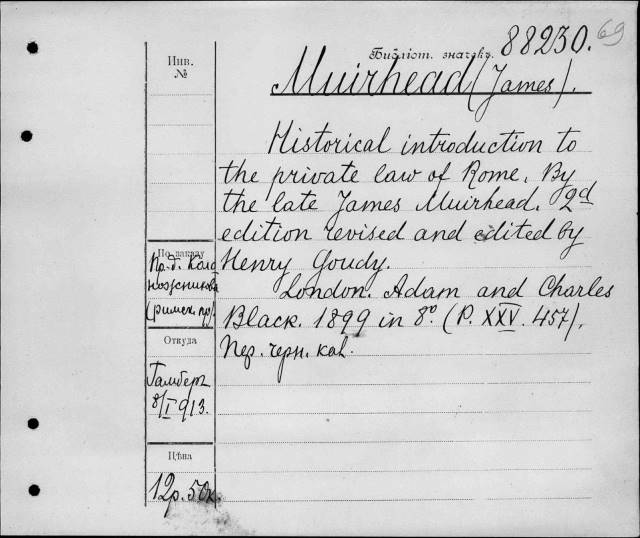 Библіот. значекъ. 88230. 69
Muirhead (James).
Historical introduction to
the private law of Rome. By
the late James Muirhead. 2d
edition revised and edited by
Henry Goudy.
London. Adam and Charles
Black. 1899 in 8º. (P. XXV. 457).
Пер. черн. кол.
Инв.
№
По заказу
(римск. пр).
Откуда
Гамберъ
8/I 913.
Цѣна
12р. 50к.